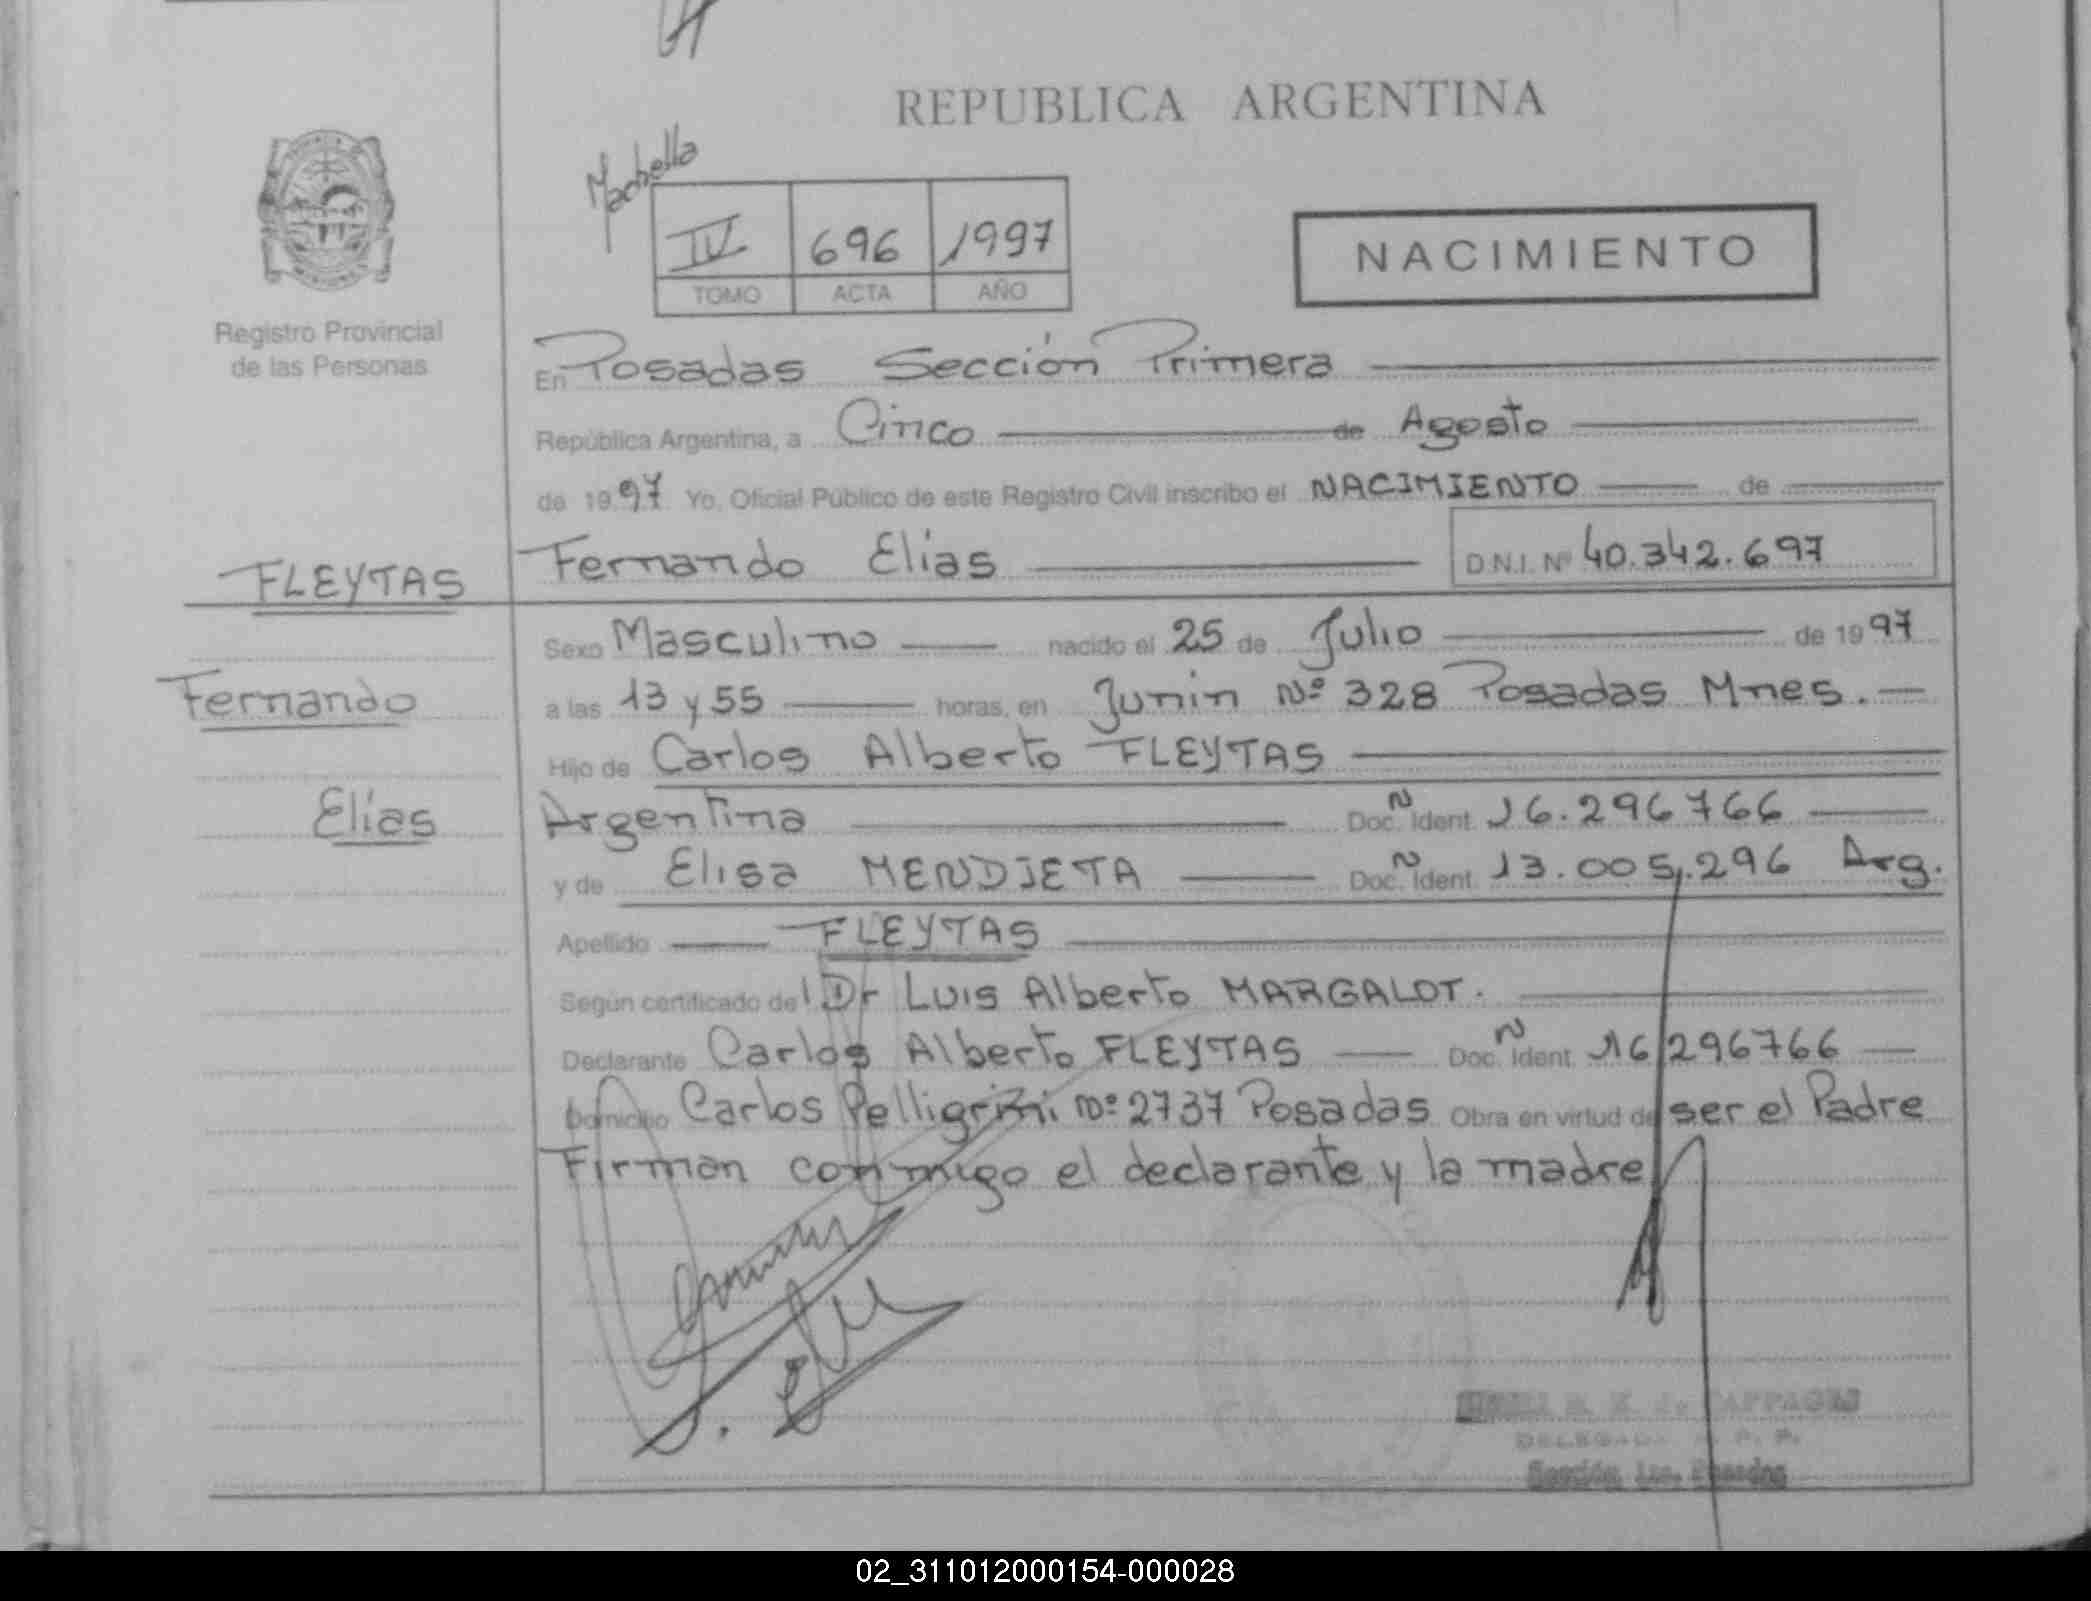 REPUBLICA ARGENTINA
Machella
IV 696 1997
TOMO ACTA AÑO
NACIMIENTO
Registro Provincial
de las Personas
En Posadas Sección Primera
República Argentina, a Cinco de Agosto
de 1997 Yo, Oficial Público de este Registro Civil inscribo el NACIMIENTO de
FLEYTAS
Fernando
Elías
Fernando Elias D.N.I. Nº 40.342.697
Sexo Masculino nacido el 25 de Julio de 1997
a las 13 y 55 horas, en Junin Nº 328 Posadas Mnes.
Hijo de Carlos Alberto FLEYTAS
Argentina Doc. N Ident. 16.296766
y de Elisa MENDIETA Doc. N Ident. 13.005.296 Arg.
Apellido FLEYTAS
Según certificado del Dr Luis Alberto MARGALOT.
Declarante Carlos Alberto FLEYTAS Doc. N Ident. 16296766
Domicilio Carlos Pelligrini Nº 2737 Posadas Obra en virtud de ser el Padre
Firman conmigo el declarante y la madre
Sección 1ra. Posadas
02_311012000154-000028